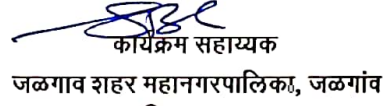 कार्यक्रम सहाय्यक
जळगाव शहर महानगरपालिका, जळगांव